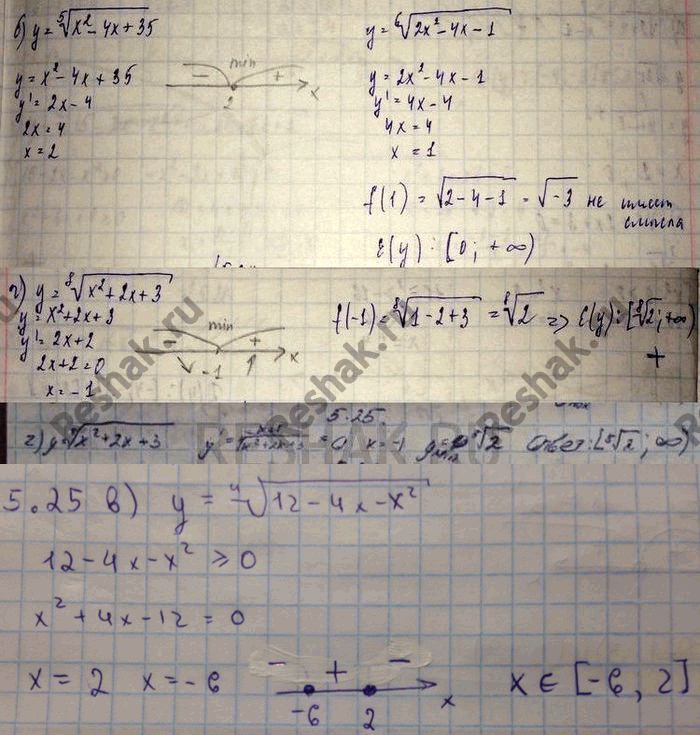 б) y = ⁵√(x² - 4x + 35)
y = x² - 4x + 35
y' = 2x - 4
2x = 4
x = 2
- min +
2 x
y = ⁶√(2x² - 4x - 1)
y = 2x² - 4x - 1
y' = 4x - 4
4x = 4
x = 1
f(1) = √(2-4-1) = √-3 не имеет
смысла
E(y): [0; +∞)
г) y = ⁸√(x² + 2x + 3)
y = x² + 2x + 3
y' = 2x + 2
2x + 2 = 0
x = -1
- min +
-1 x
f(-1) = ⁸√(1-2+3) = ⁸√2 => E(y): [⁸√2; +∞)
+
5.25.
г) y = ⁸√(x² + 2x + 3) y' = = 0 x = -1 ⁸√2 Ответ: [⁸√2; ∞)
5.25 в) y = ⁴√(12 - 4x - x²)
12 - 4x - x² ≥ 0
x² + 4x - 12 = 0
x = 2 x = -6
- + -
-6 2 x
x ∈ [-6, 2]
Reshak.ru
Reshak.ru
Reshak.ru
RESHAK.RU